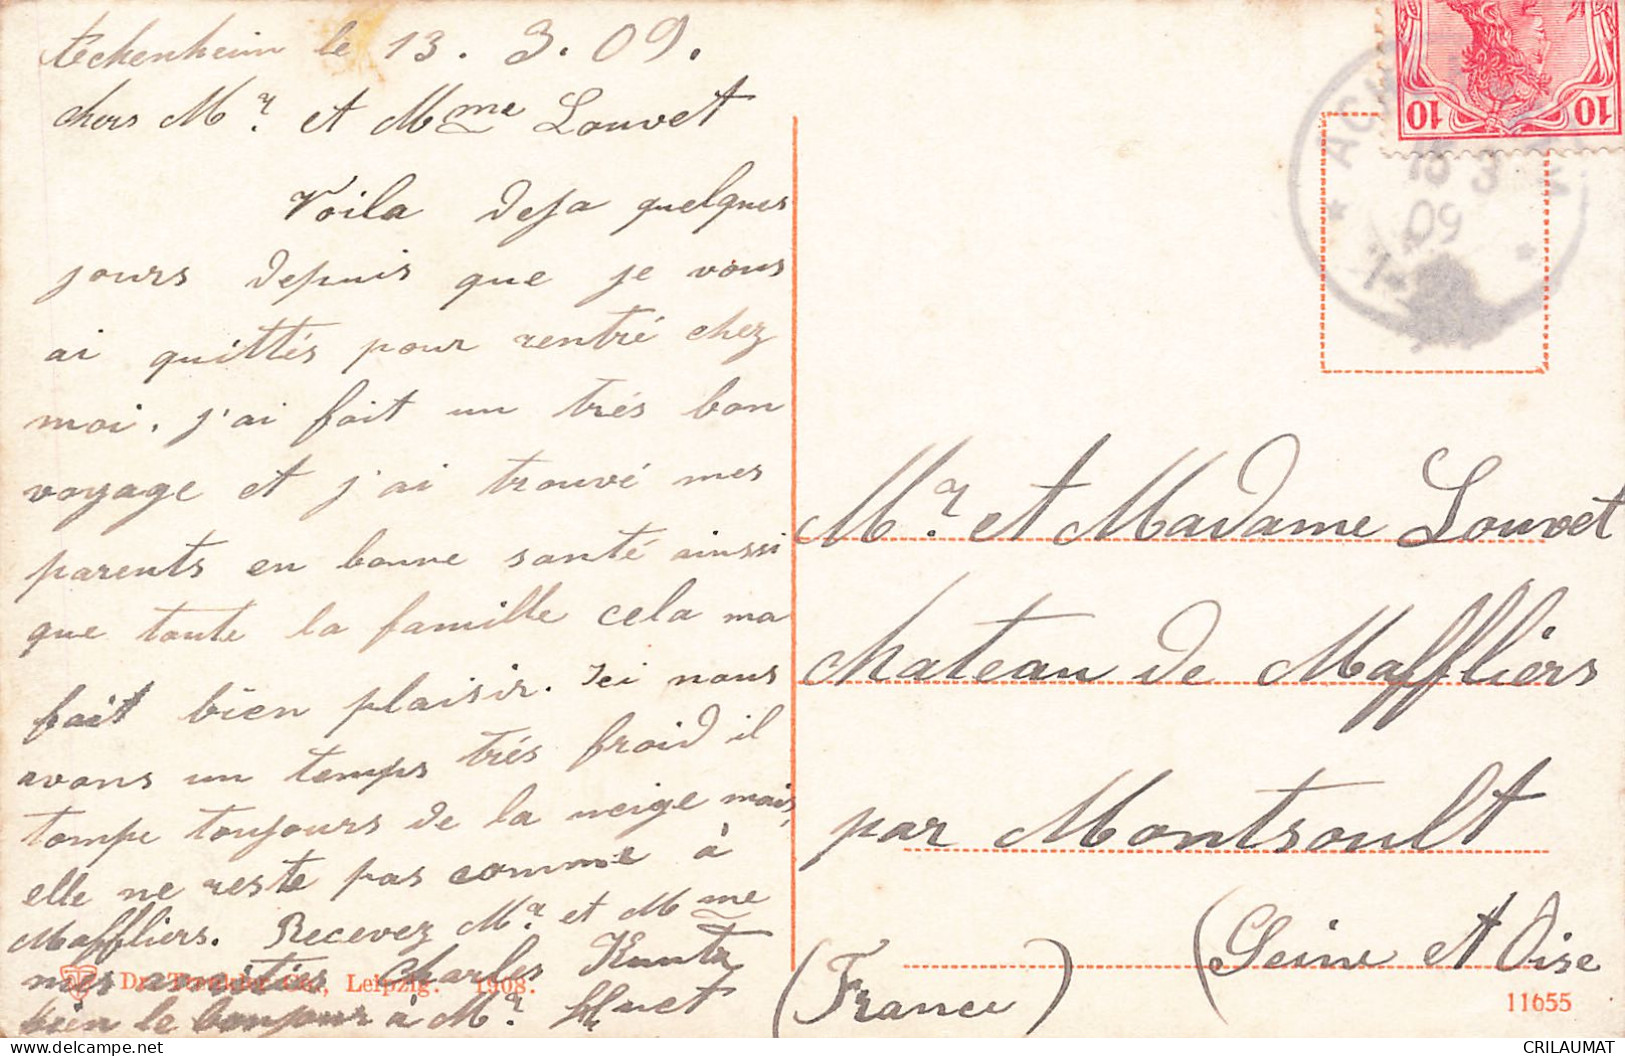 Eckenheim le 13. 3. 09.
chers Mr. et Mme Louvet
Voila deja quelques
jours depuis que je vous
ai quittés pour rentré chez
moi. j'ai fait un trés bon
voyage et j'ai trouvé mes
parents en bonne santé ainsi
que toute la famille cela ma
fait bien plaisir. Ici nous
avons un temps trés froid il
tompe toujours de la neige mais,
elle ne reste pas comme à
Maffliers. Recevez Mr. et Mme
mes amitiés Charles Kuntz
bien le bonjour à Mr. Huet
Dr. Trenkler Co., Leipzig. 1908.
10 10
13 3
09
Mr. et Madame Louvet
chateau de Maffliers
par Montsoult
(Seine et Oise
(France)
11655
CRILAUMAT